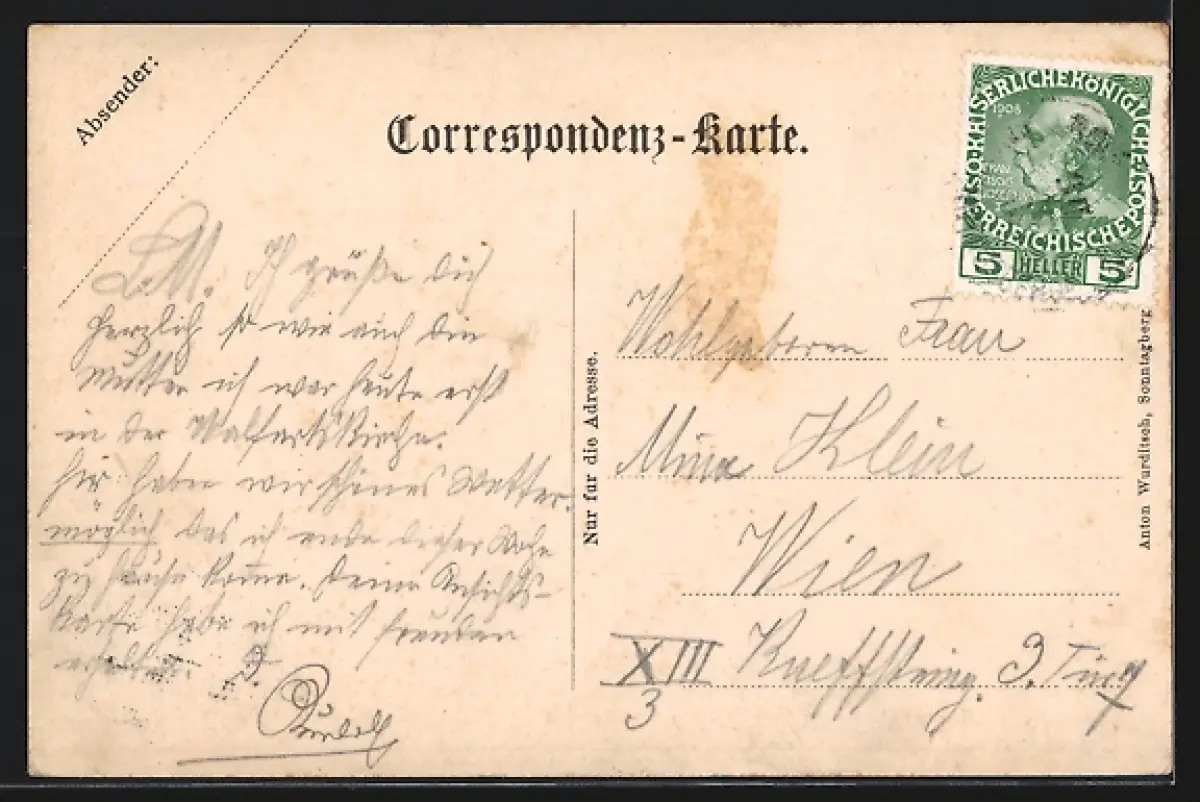 Absender:
Correspondenz-Karte.
ÖSTERREICHISCHE POST
1908
5 HELLER 5
L. M. Ich grüße dich
herzlich so wie auch die
Mutter ich war heute erst
in der Walfartskirche.
hir haben wir schönes Wetter.
möglich das ich ende dieser Woche
zu hause kome. deine Ansichts-
karte habe ich mit freuden
erhalten. D.
Rudolf
Nur für die Adresse.
Wohlgeboren Frau
Mina Klein
Wien
XIII
3
3. Tür
Anton Wurditsch, Sonntagberg